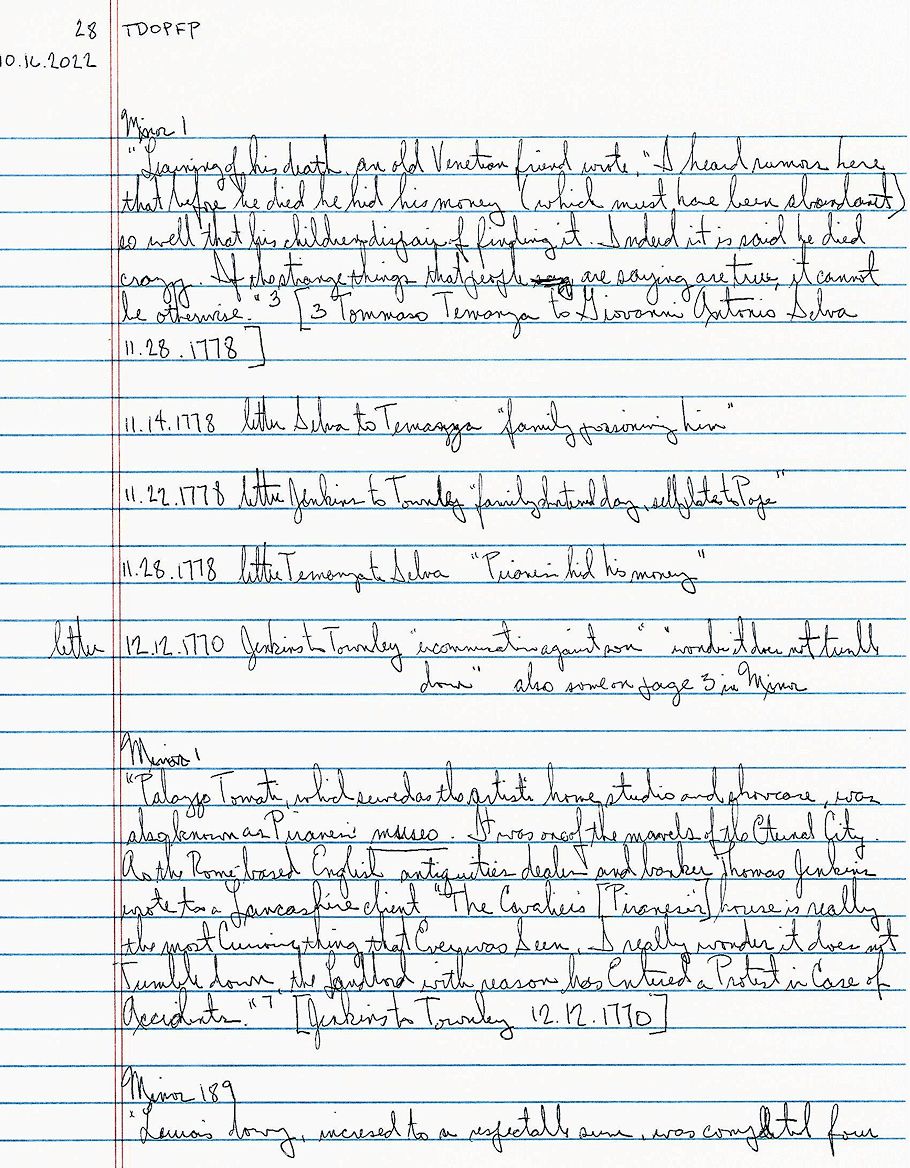 28 TDOPFP
10.16.2022
Minor 1
"Learning of his death, an old Venetian friend wrote, "I heard rumors here
that before he died he hid his money (which must have been abundant)
so well that his children dispair of finding it. Indeed it is said he died
crazy. If the strange things that people are saying are true, it cannot
be otherwise."3 [3 Tommaso Temanza to Giovanni Antonio Selva
11.28.1778]
11.14.1778 letter Selva to Temanza "family poisoning him"
11.22.1778 letter Jenkins to Townley "family day, to Pope"
11.28.1778 letter Temanza to Selva "Piranesi hid his money"
letter 12.12.1770 Jenkins to Townley "against son" "wonder it does not tumble
down" also some on page 3 in Minor
Minor 1
"Palazzo Tomati, which served as the artist's home, studio and showcase, was
also known as Piranesi museo. It was one of the marvels of the Eternal City.
As the Rome-based English antiquities dealer and banker Thomas Jenkins
wrote to a Lancashire client "The Cavalier's [Piranesi's] house is really
the most Curious thing that Ever was Seen, I really wonder it does not
Tumble down, the Landlord with reason has Entered a Protest in Case of
Accidents."7 [Jenkins to Townley 12.12.1770]
Minor 189
"Laura's dowry, incresed to a respectable sum, was completed four